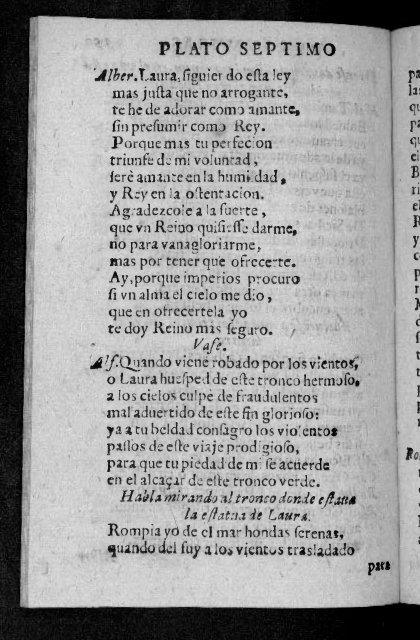 PLATO SEPTIMO
Alber. Laura, siguiendo esta ley
mas justa que no arrogante,
te he de adorar como amante,
sin presumir como Rey.
Porque mas tu perfecion
triunfe de mi voluntad,
serè amante en la humildad,
y Rey en la ostentacion.
Agradezcole a la suerte,
que vn Reino quisiesse darme,
no para vanagloriarme,
mas por tener que ofrecerte.
Ay, porque imperios procuro
si vn alma el cielo me dio,
que en ofrecertela yo
te doy Reino mas seguro.
Vase.
Alf. Quando viene robado por los vientos,
o Laura huesped de este tronco hermoso,
a los cielos culpè de fraudulentos
mal aduertido de este fin glorioso:
ya a tu beldad consagro los violentos
passos de este viaje prodigioso,
para que tu piedad de mi se acuerde
en el alcaçar de este tronco verde.
Habla mirando al tronco donde estaua
la estatua de Laura.
Rompia yo de el mar hondas serenas,
quando del fuy a los vientos trasladado
para
pa
la
qu
pa
qu
el
B
ri
el
R
y
c
p
Ro